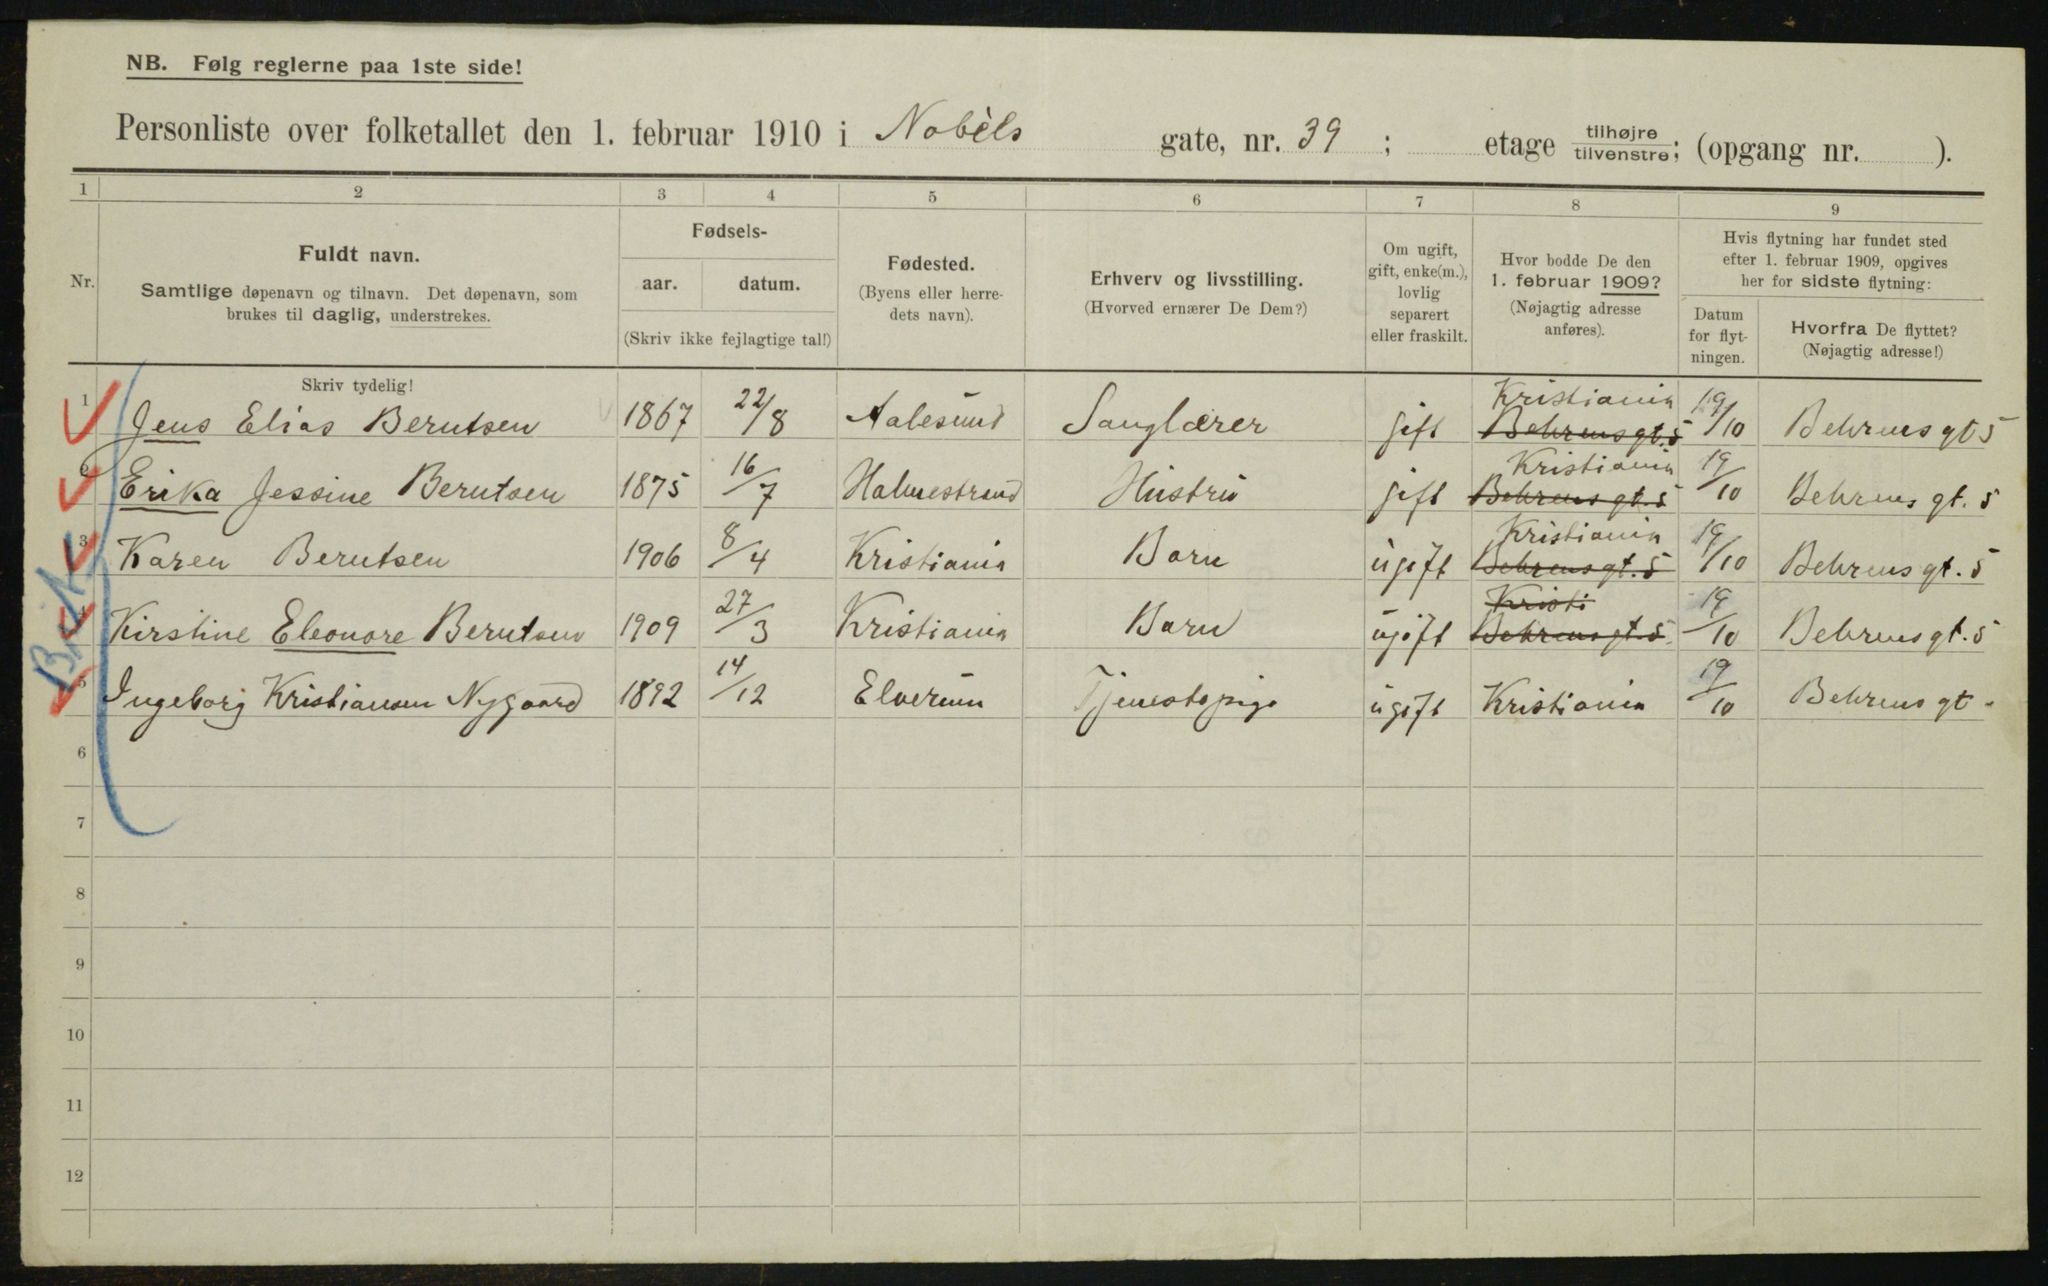 NB. Følg reglerne paa 1ste side!
Personliste over folketallet den 1. februar 1910 i Nobèls gate, nr. 39 ; etage tilhøjre/tilvenstre; (opgang nr. ).
1 2 3 4 5 6 7 8 9
Nr.
Fuldt navn.
Samtlige døpenavn og tilnavn. Det døpenavn, som
brukes til daglig, understrekes.
Fødsels-
aar. datum.
(Skriv ikke fejlagtige tal!)
Fødested.
(Byens eller herre-
dets navn).
Erhverv og livsstilling.
(Hvorved ernærer De Dem?)
Om ugift,
gift, enke(m.),
lovlig
separert
eller fraskilt.
Hvor bodde De den
1. februar 1909?
(Nøjagtig adresse
anføres).
Hvis flytning har fundet sted
efter 1. februar 1909, opgives
her for sidste flytning:
Datum
for flyt-
ningen.
Hvorfra De flyttet?
(Nøjagtig adresse!)
Skriv tydelig!
Kristiania
1 Jens Elias Berntsen 1867 22/8 Aalesund Sanglærer gift Behrensgt. 5 19/10 Behrensgt 5
Kristiania
2 Erika Jessine Berntsen 1875 16/7 Holmestrand Hustru gift Behrens gt. 5 19/10 Behrens gt. 5
Kristiania
3 Karen Berntsen 1906 8/4 Kristiania Barn ugift Behrensgt. 5 19/10 Behrensgt. 5
Kristi
4 Kirstine Eleonore Berntsen 1909 27/3 Kristiania Barn ugift Behrensgt. 5 19/10 Behrensgt. 5
5 Ingeborg Kristiansen Nygaard 1892 14/12 Elverum Tjenestepige ugift Kristiania 19/10 Behrensgt.
6
7
8
9
10
11
12